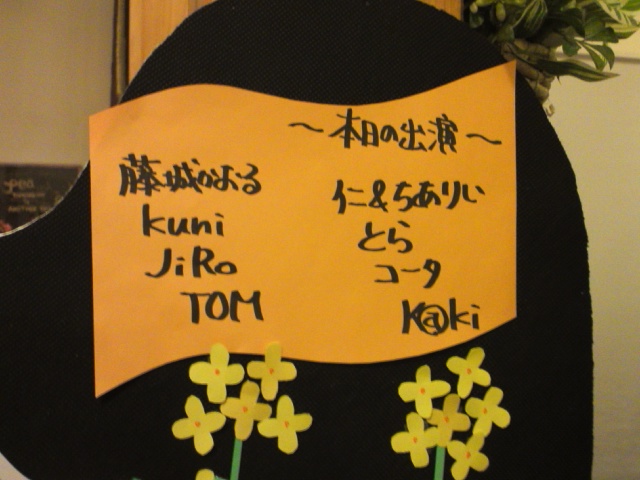 ～本日の出演～
仁&ちありい
とら
コータ
K@ki
藤城かおる
kuni
JiRo
TOM